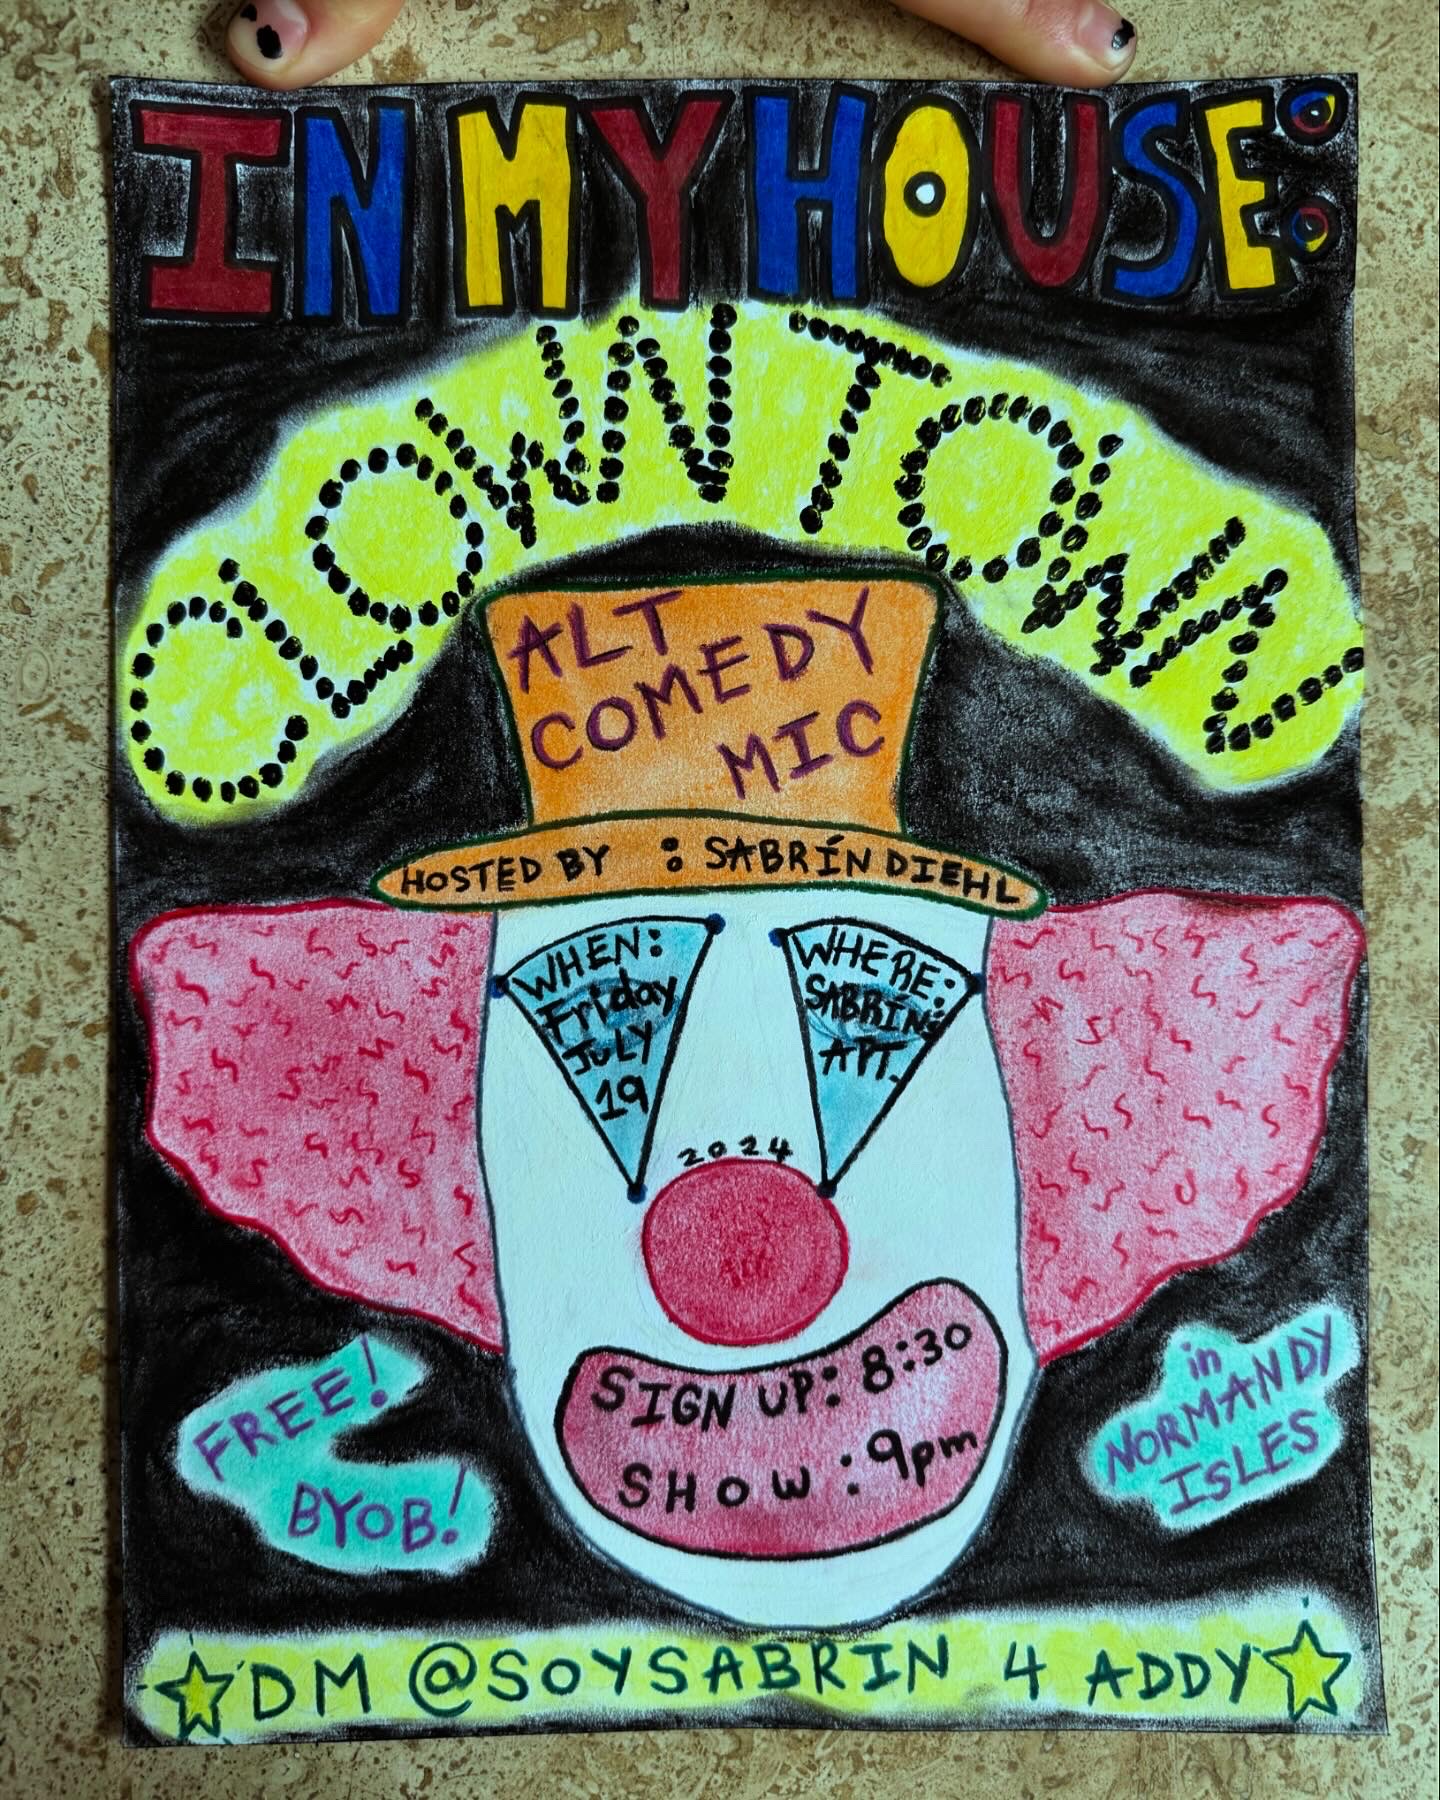 IN MY HOUSE:
CLOWN TOWN!
ALT
COMEDY
MIC
HOSTED BY : SABRÍN DIEHL
WHEN:
Friday
JULY
19
WHERE:
SABRÍN's
APT.
2024
SIGN UP: 8:30
SHOW : 9pm
FREE!
BYOB!
in
NORMANDY
ISLES
DM @SOYSABRIN 4 ADDY